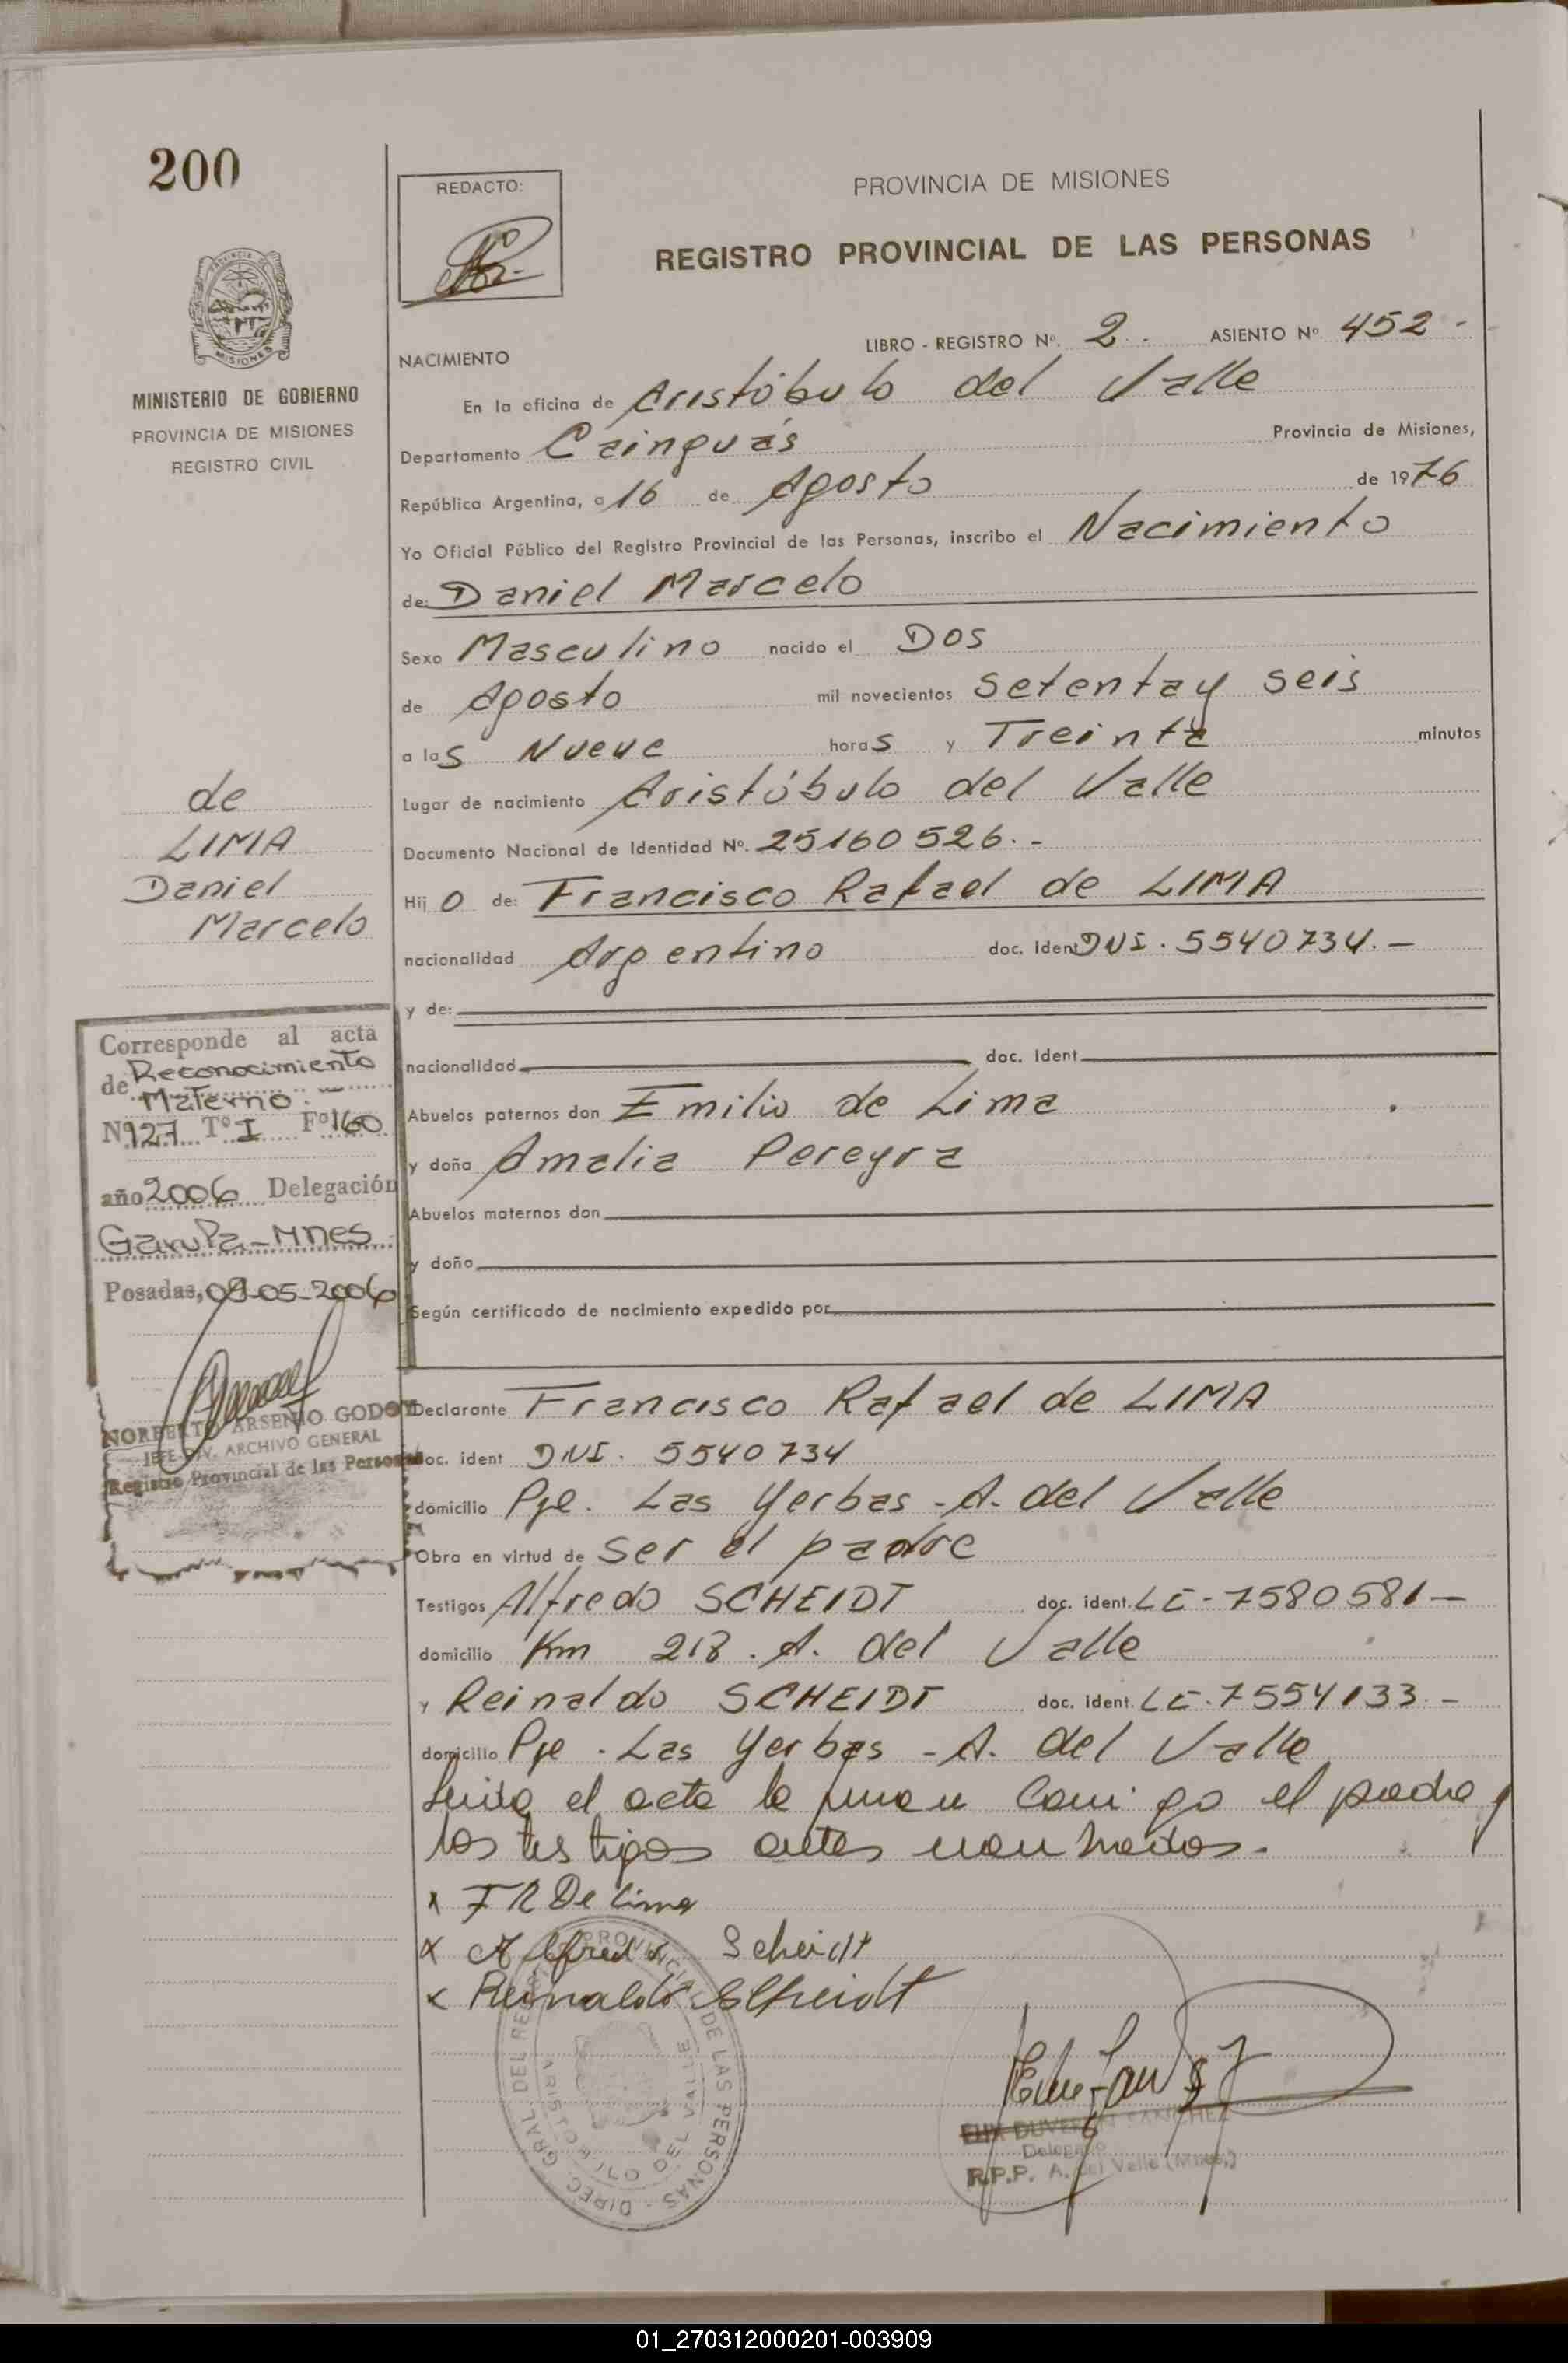 200
REDACTO:
PROVINCIA DE MISIONES
REGISTRO PROVINCIAL DE LAS PERSONAS
PROVINCIA DE
MISIONES
MINISTERIO DE GOBIERNO
PROVINCIA DE MISIONES
REGISTRO CIVIL
LIBRO - REGISTRO Nº. 2. ASIENTO Nº 452 -
NACIMIENTO
En la oficina de Aristóbulo del Valle
Departamento Cainguás Provincia de Misiones,
República Argentina, a 16 de Agosto de 1976
Yo Oficial Público del Registro Provincial de las Personas, inscribo el Nacimiento
de: Daniel Marcelo
Sexo Masculino nacido el Dos
de Agosto mil novecientos setenta y seis
a las Nueve horas y Treinta minutos
Lugar de nacimiento Aristóbulo del Valle
Documento Nacional de Identidad Nº. 25160526. -
Hijo de: Francisco Rafael de LIMA
nacionalidad Argentino doc. Ident DNI. 5540734. -
y de:
nacionalidad doc. Ident.
Abuelos paternos don Emilio de Lima
y doña Amalia Pereyra
Abuelos maternos don
y doña
Según certificado de nacimiento expedido por
de
LIMA
Daniel
Marcelo
Corresponde al acta
de Reconocimiento
Materno. -
Nº 127 Tº I Fº 160
año 2006 Delegación
Garupa - Mnes.
Posadas, 09-05-2006
NORBERTO ARSENIO GODOY
JEFE DIV. ARCHIVO GENERAL
Registro Provincial de las Personas
Declarante Francisco Rafael de LIMA
doc. ident DNI. 5540734
domicilio Pje. Las Yerbas - A. del Valle
Obra en virtud de ser el padre
Testigos Alfredo SCHEIDT doc. ident. LE - 7580581 -
domicilio Km 218. A. del Valle
y Reinaldo SCHEIDT doc. ident. LE. 7554133. -
domicilio Pje. Las Yerbas - A. del Valle
Leida el acta la firman conmigo el padre y
los testigos antes nombrados.
x F R De Lima
x Alfredo Scheidt
x Reinaldo Scheidt
DIREC. GRAL. DEL REGISTRO PROVINCIAL DE LAS PERSONAS
OFIC. ARISTOBULO DEL VALLE
SANCHEZ
Delegado
R.P.P. A. del Valle (Mnes.)
01_270312000201-003909